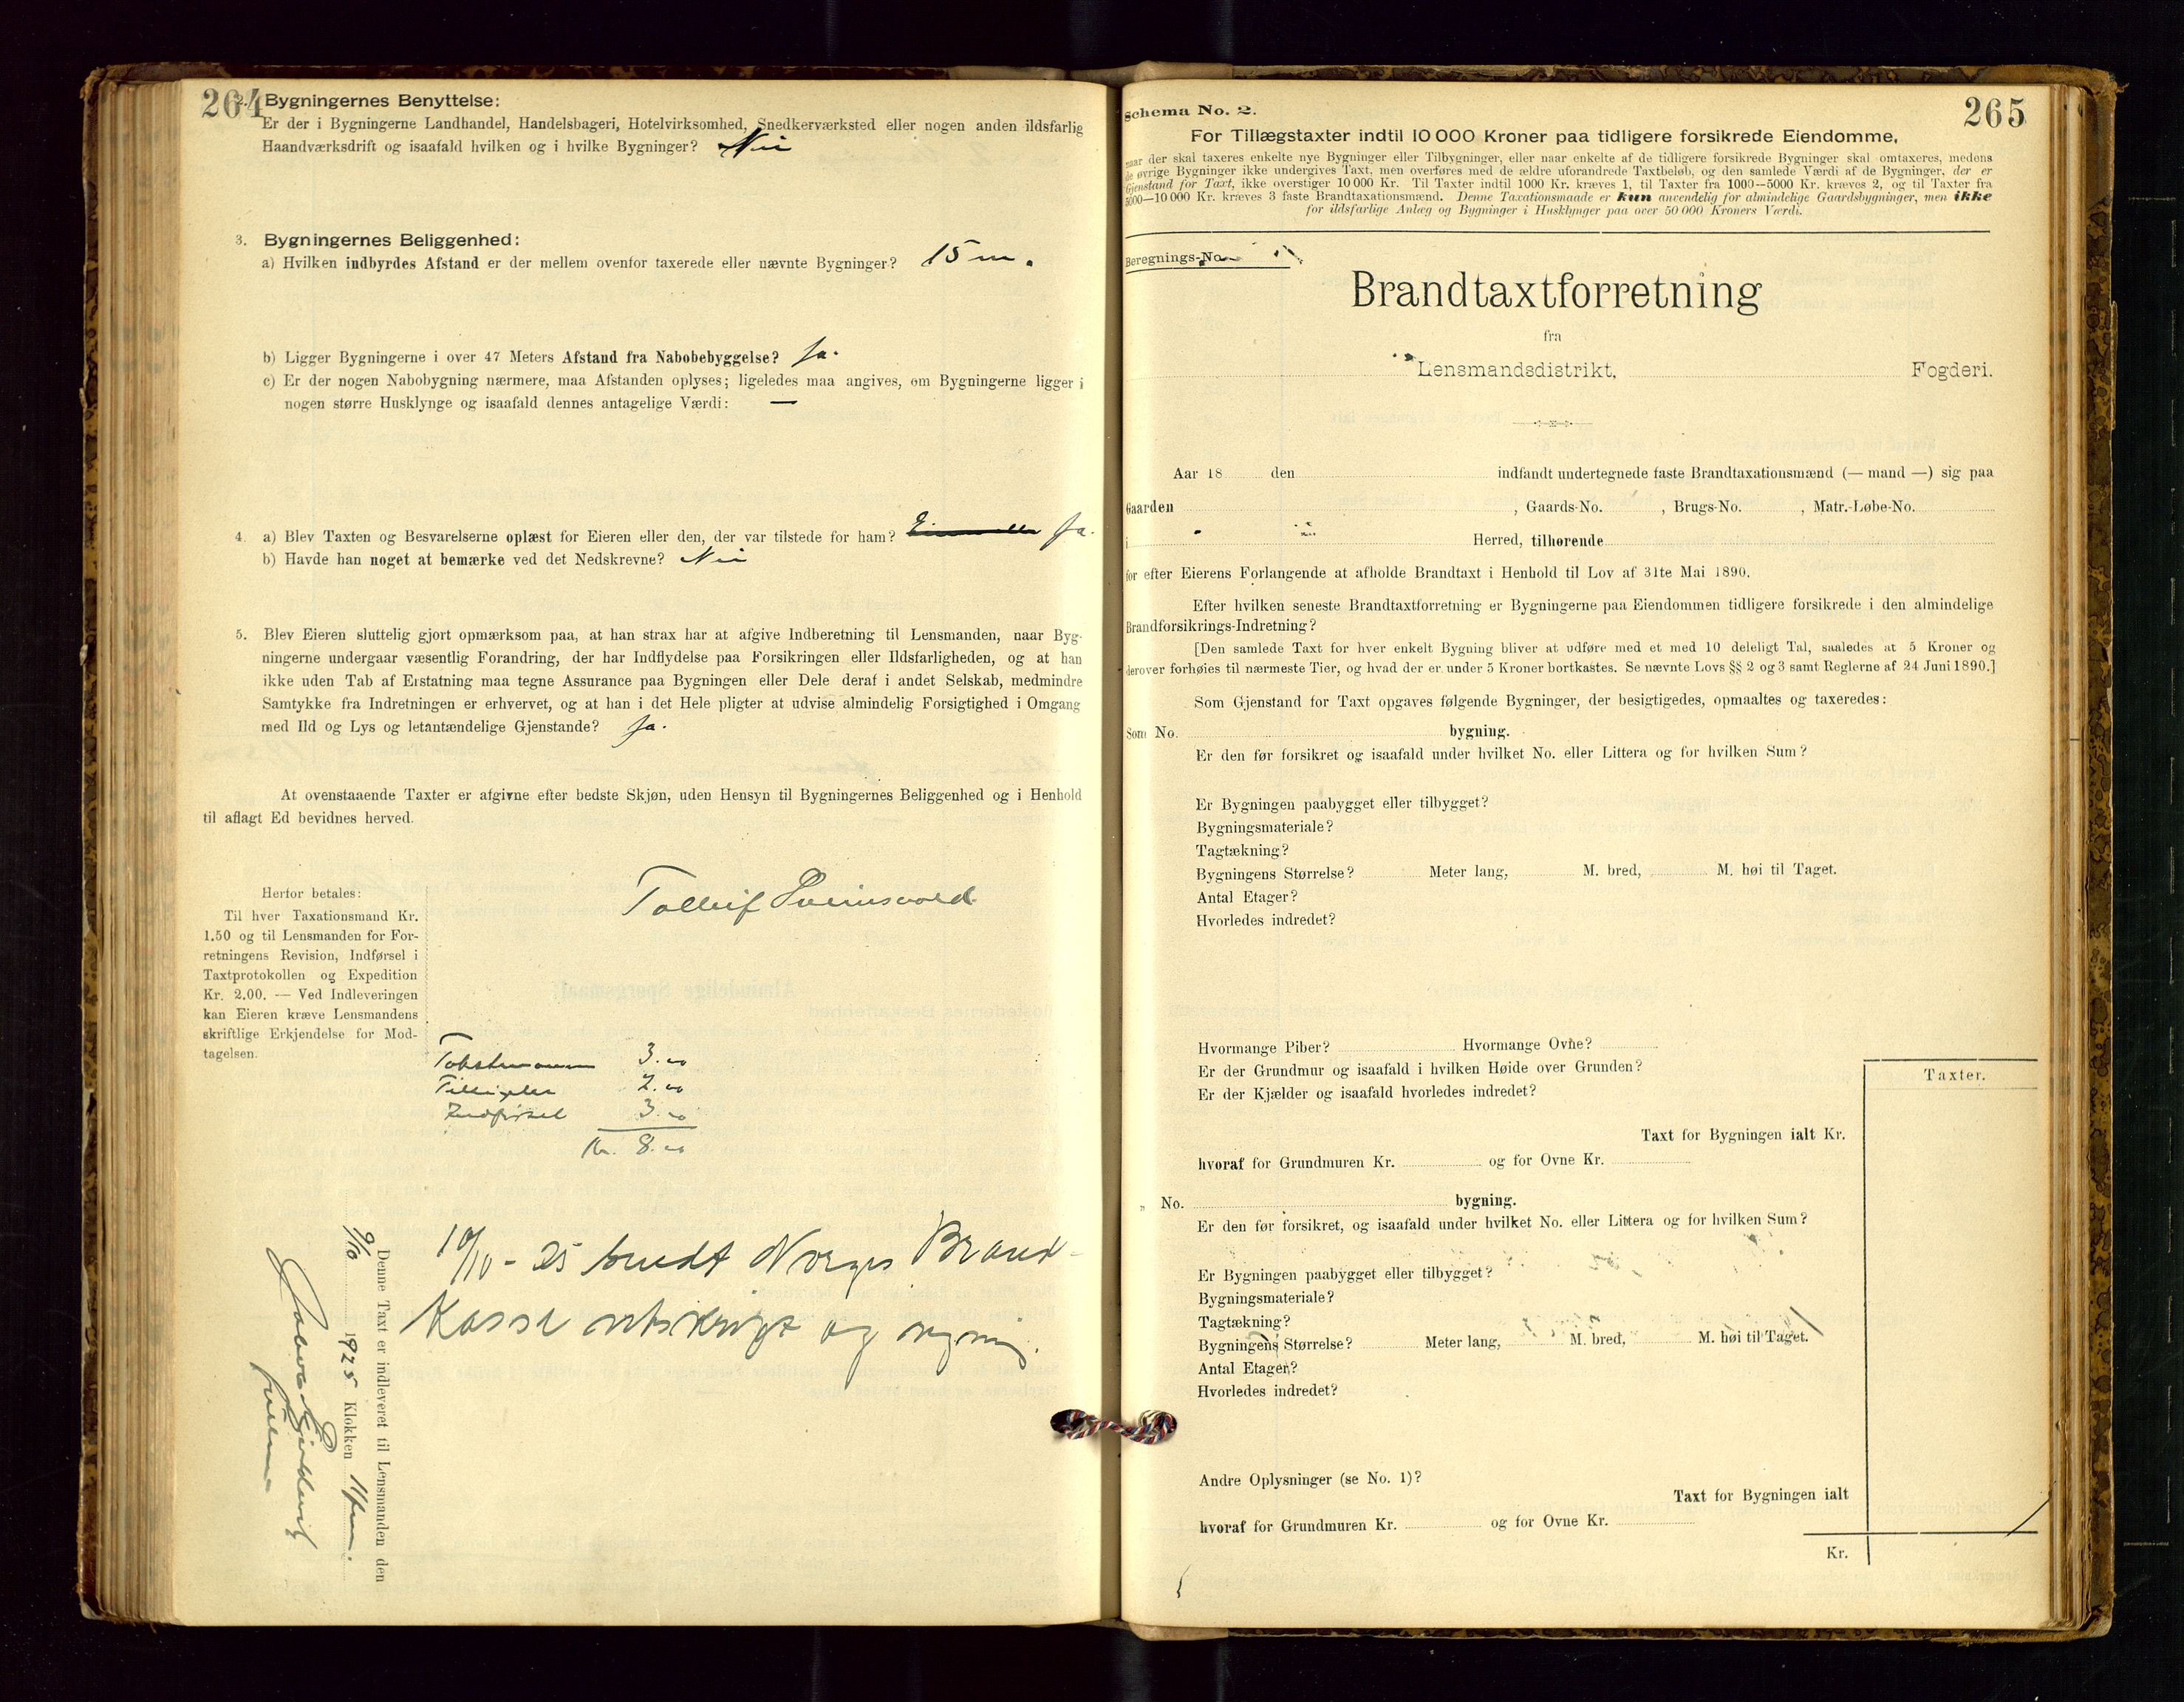 264
2. Bygningernes Benyttelse:
Er der i Bygningerne Landhandel, Handelsbageri, Hotelvirksomhed, Snedkerværksted eller nogen anden ildsfarlig
Haandværksdrift og isaafald hvilken og i hvilke Bygninger? Nei
3. Bygningernes Beliggenhed:
a) Hvilken indbyrdes Afstand er der mellem ovenfor taxerede eller nævnte Bygninger? 15 m.
b) Ligger Bygningerne i over 47 Meters Afstand fra Nabobebyggelse? Ja.
c) Er der nogen Nabobygning nærmere, maa Afstanden oplyses; ligeledes maa angives, om Bygningerne ligger i
nogen større Husklynge og isaafald dennes antagelige Værdi: —
4. a) Blev Taxten og Besvarelserne oplæst for Eieren eller den, der var tilstede for ham? Ja.
b) Havde han noget at bemærke ved det Nedskrevne? Nei
5. Blev Eieren sluttelig gjort opmærksom paa, at han strax har at afgive Indberetning til Lensmanden, naar Byg-
ningerne undergaar væsentlig Forandring, der har Indflydelse paa Forsikringen eller Ildsfarligheden, og at han
ikke uden Tab af Erstatning maa tegne Assurance paa Bygningen eller Dele deraf i andet Selskab, medmindre
Samtykke fra Indretningen er erhvervet, og at han i det Hele pligter at udvise almindelig Forsigtighed i Omgang
med Ild og Lys og letantændelige Gjenstande? Ja.
At ovenstaaende Taxter er afgivne efter bedste Skjøn, uden Hensyn til Bygningernes Beliggenhed og i Henhold
til aflagt Ed bevidnes herved.
Herfor betales:
Til hver Taxationsmand Kr.
1.50 og til Lensmanden for For-
retningens Revision, Indførsel i
Taxtprotokollen og Expedition
Kr. 2.00. — Ved Indleveringen
kan Eieren kræve Lensmandens
skriftlige Erkjendelse for Mod-
tagelsen.
Tolleif
3.00
2.00
Indførsel 3.00
Kr. 8.00
10/10 - 25 sendt Norges Brand-
Kasse utskrift og
Denne Taxt er indleveret til Lensmanden den
9/10 1925 Klokken
265
Schema No. 2.
For Tillægstaxter indtil 10 000 Kroner paa tidligere forsikrede Eiendomme,
naar der skal taxeres enkelte nye Bygninger eller Tilbygninger, eller naar enkelte af de tidligere forsikrede Bygninger skal omtaxeres, medens
de øvrige Bygninger ikke undergives Taxt, men overføres med de ældre uforandrede Taxtbeløb, og den samlede Værdi af de Bygninger, der er
Gjenstand for Taxt, ikke overstiger 10 000 Kr. Til Taxter indtil 1000 Kr. kræves 1, til Taxter fra 1000—5000 Kr. kræves 2, og til Taxter fra
5000—10 000 Kr. kræves 3 faste Brandtaxationsmænd. Denne Taxationsmaade er kun anvendelig for almindelige Gaardsbygninger, men ikke
for ildsfarlige Anlæg og Bygninger i Husklynger paa over 50 000 Kroners Værdi.
Beregnings-No.
Brandtaxtforretning
fra
Lensmandsdistrikt, Fogderi.
Aar 18 den indfandt undertegnede faste Brandtaxationsmænd (— mand —) sig paa
Gaarden , Gaards-No. , Brugs-No. , Matr.-Løbe-No.
i Herred, tilhørende
for efter Eierens Forlangende at afholde Brandtaxt i Henhold til Lov af 31te Mai 1890.
Efter hvilken seneste Brandtaxtforretning er Bygningerne paa Eiendommen tidligere forsikrede i den almindelige
Brandforsikrings-Indretning?
[Den samlede Taxt for hver enkelt Bygning bliver at udføre med et med 10 deleligt Tal, saaledes at 5 Kroner og
derover forhøies til nærmeste Tier, og hvad der er under 5 Kroner bortkastes. Se nævnte Lovs §§ 2 og 3 samt Reglerne af 24 Juni 1890.]
Som Gjenstand for Taxt opgaves følgende Bygninger, der besigtigedes, opmaaltes og taxeredes:
Som No. bygning.
Er den før forsikret og isaafald under hvilket No. eller Littera og for hvilken Sum?
Er Bygningen paabygget eller tilbygget?
Bygningsmateriale?
Tagtækning?
Bygningens Størrelse? Meter lang, M. bred, M. høi til Taget.
Antal Etager?
Hvorledes indredet?
Hvormange Piber? Hvormange Ovne?
Er der Grundmur og isaafald i hvilken Høide over Grunden?
Er der Kjælder og isaafald hvorledes indredet?
Taxter.
Taxt for Bygningen ialt Kr.
hvoraf for Grundmuren Kr. og for Ovne Kr.
„ No. bygning.
Er den før forsikret, og isaafald under hvilket No. eller Littera og for hvilken Sum?
Er Bygningen paabygget eller tilbygget?
Bygningsmateriale?
Tagtækning?
Bygningens Størrelse? Meter lang, M. bred, M. høi til Taget.
Antal Etager?
Hvorledes indredet?
Andre Oplysninger (se No. 1)?
Taxt for Bygningen ialt
hvoraf for Grundmuren Kr. og for Ovne Kr.
Kr.